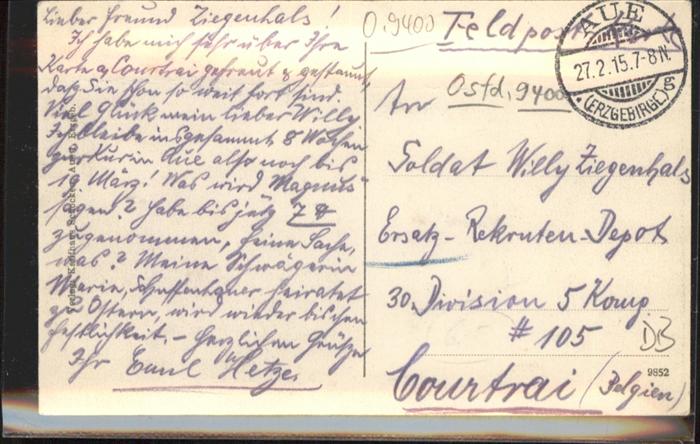 Lieber Freund Ziegenhals!
Ich habe mich sehr über Ihre
Karte a. Courtrai gefreut & gestaunt,
daß Sie schon so weit fort sind.
Viel Glück mein lieber Willy
Ich bleibe insgesammt 8 Wochen
zur Kur in Aue also noch bis
19. März! Was wird "Magnus"
sagen? Habe bis jetz 7 ℔
zugenommen, feine Sache,
was? Meine Schwägerin
Marie Schaffenhauer heiratet
zu Ostern, wird wieder bisschen
Festlichkeit. – Herzlichen Grüßen
Ihr Emil Hetzer
O.9400
Feldpost
AUE
27.2.15.7-8N.
(ERZGEBIRGE)
Ostd. 9400
An
Soldat Willy Ziegenhals
Ersatz-Rekruten-Depot
30. Division 5 Komp.
# 105
DB
9852
Courtrai (Belgien)